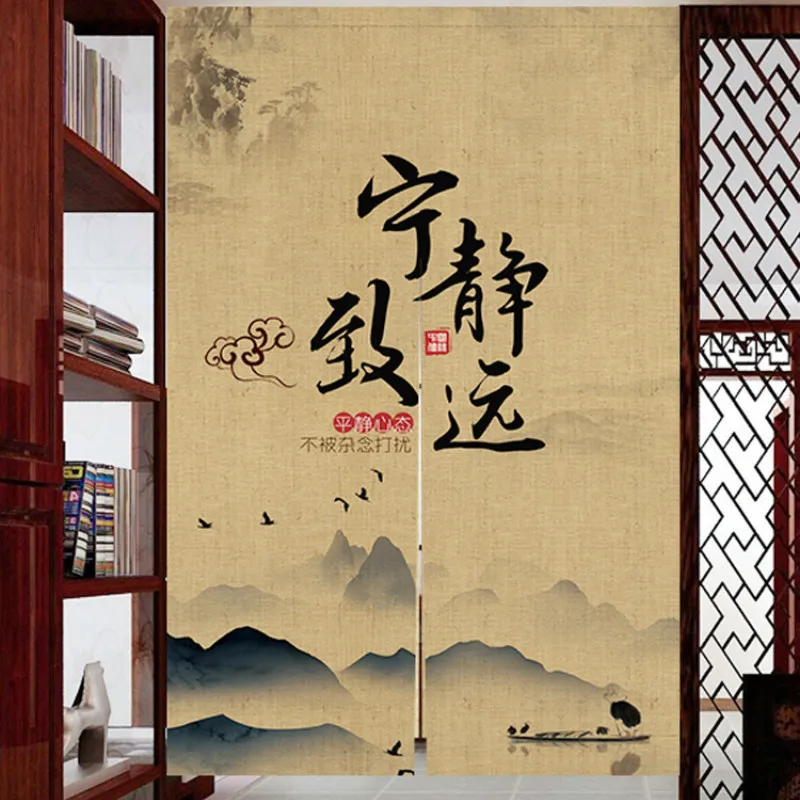 宁静
致远
平静心态
不被杂念打扰